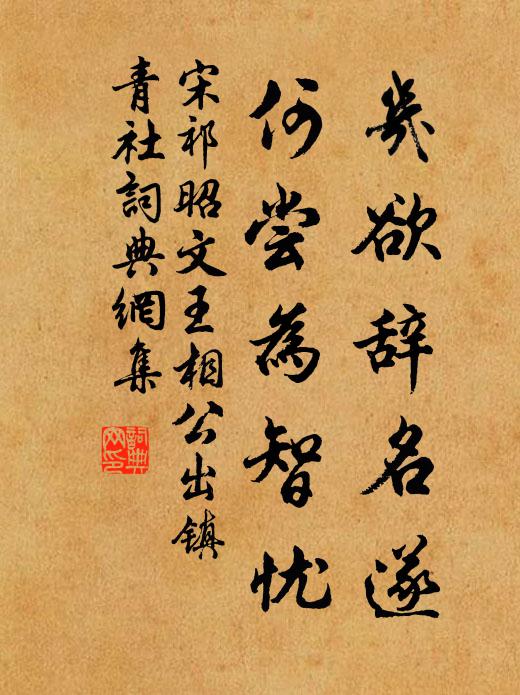 幾欲辞名遂
何尝為智忧
宋祁昭文王相公出镇
青社詞典網集
詞典网印